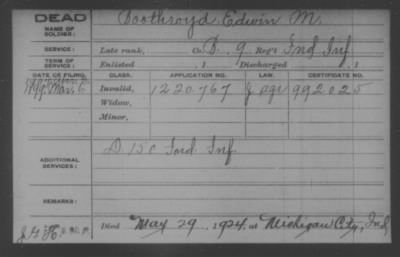 DEAD
NAME OF SOLDIER: Boothroyd, Edwin M.
SERVICE: Late rank, Co. D, 9 Reg't Ind Inf
TERM OF SERVICE: Enlisted , 1 Discharged , 1
DATE OF FILING. CLASS. APPLICATION NO. LAW. CERTIFICATE NO.
Invalid, 1220767 992025
Widow,
Minor,
ADDITIONAL SERVICES: D 150 Ind Inf
REMARKS:
Died May 29, 1924, at Michigan City, Ind